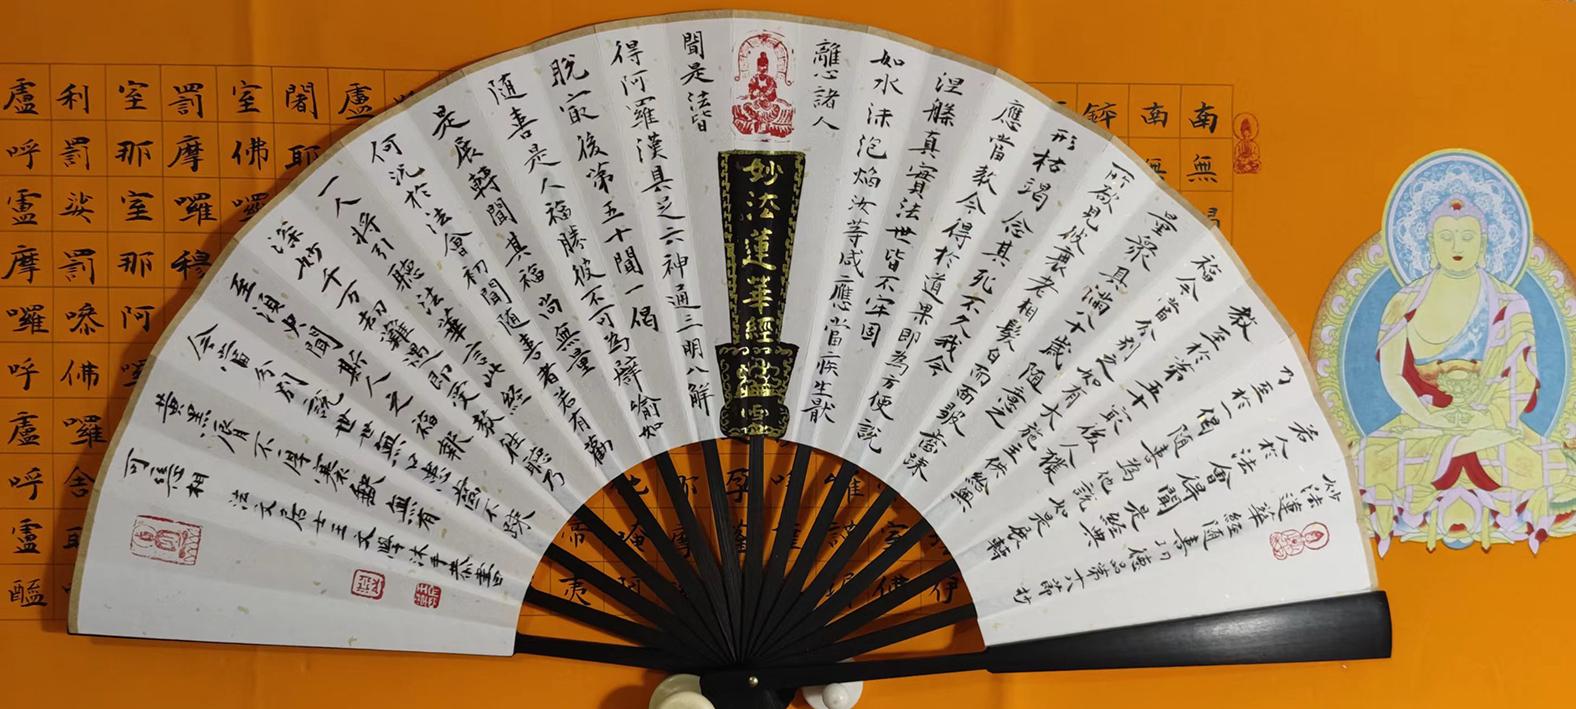 妙法蓮華經隨喜功德品第十八節抄
若人於法會得聞是經典
乃至於一偈隨喜為他說如是展轉
教至於第五十最後人獲
福今當分別之如有大施主供給無
量眾具滿八十歲隨意之
所欲見彼衰老相髮白而面皺齒疎
形枯竭念其死不久我今
應當教令得於道果即為方便說
涅槃真實法世皆不牢固
如水沫泡焰汝等咸應當疾生厭
離心諸人
妙法蓮華經
聞是法皆
得阿羅漢具足六神通三明八解
脫最後第五十聞一偈
隨喜是人福勝彼不可為譬喻如
是展轉聞其福尚無量
何況於法會初聞隨喜者若有勸
一人將引聽法華言此經
深妙千萬劫難遇即受教往聽乃
至須臾聞斯人之福報
今當分別說世世無口患齒不疎
黃黑脣不厚褰缺無有
可惡相
法文居士王文學沐手恭書
南無
南
盧
闍耶
室佛囉
罰摩囉穆
室那室那阿
利罰娑罰嚟佛囉舍
盧呼盧摩囉呼盧呼盧醯